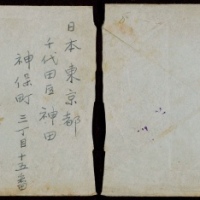 日本東京都
千代田区神田
神保町三丁目十五番